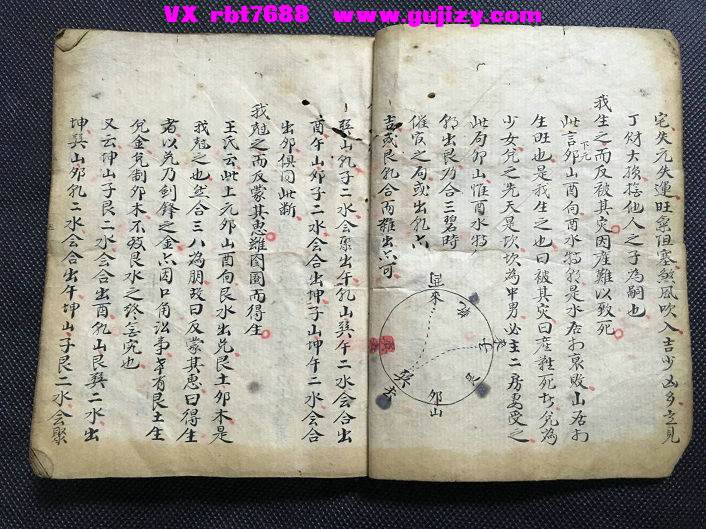 VX rbt7688 www.gujizy.com
宅失元失運旺氣阻塞煞風吹入吉少凶多立見
丁財大損撿他人之子為嗣也
我生之而反被其灾因產難以致死
此言卯山酉向酉水特
下元
是水在
衰敗山在
生旺也是我生之也曰被其灾曰產難死者兌為
少女兌之先天是坎坎為中男必主二房妻受之
此局卯山惟酉水特
出艮乃合三碧時
催官之局或出乾亦
吉或艮乾合而雜出亦可
子
卯山
巽山乾子二水会聚出午乾山巽午二水会合出
酉午山卯子二水会合出坤子山坤午二水会合
出卯俱同此斷
我剋之而反蒙其惠雖囹圄而得生
王氏云此上元卯山酉向艮水出兌艮土卯木是
我剋之也然合三八為朋故曰反蒙其惠曰得生
者以先乃剑鋒之金亦因口角訟事幸有艮土生
兌金兌制卯木不致艮水之終無究也
又云坤山子艮二水会合出酉乾山艮巽二水出
坤巽山卯乾二水会合出午坤山子艮二水会聚